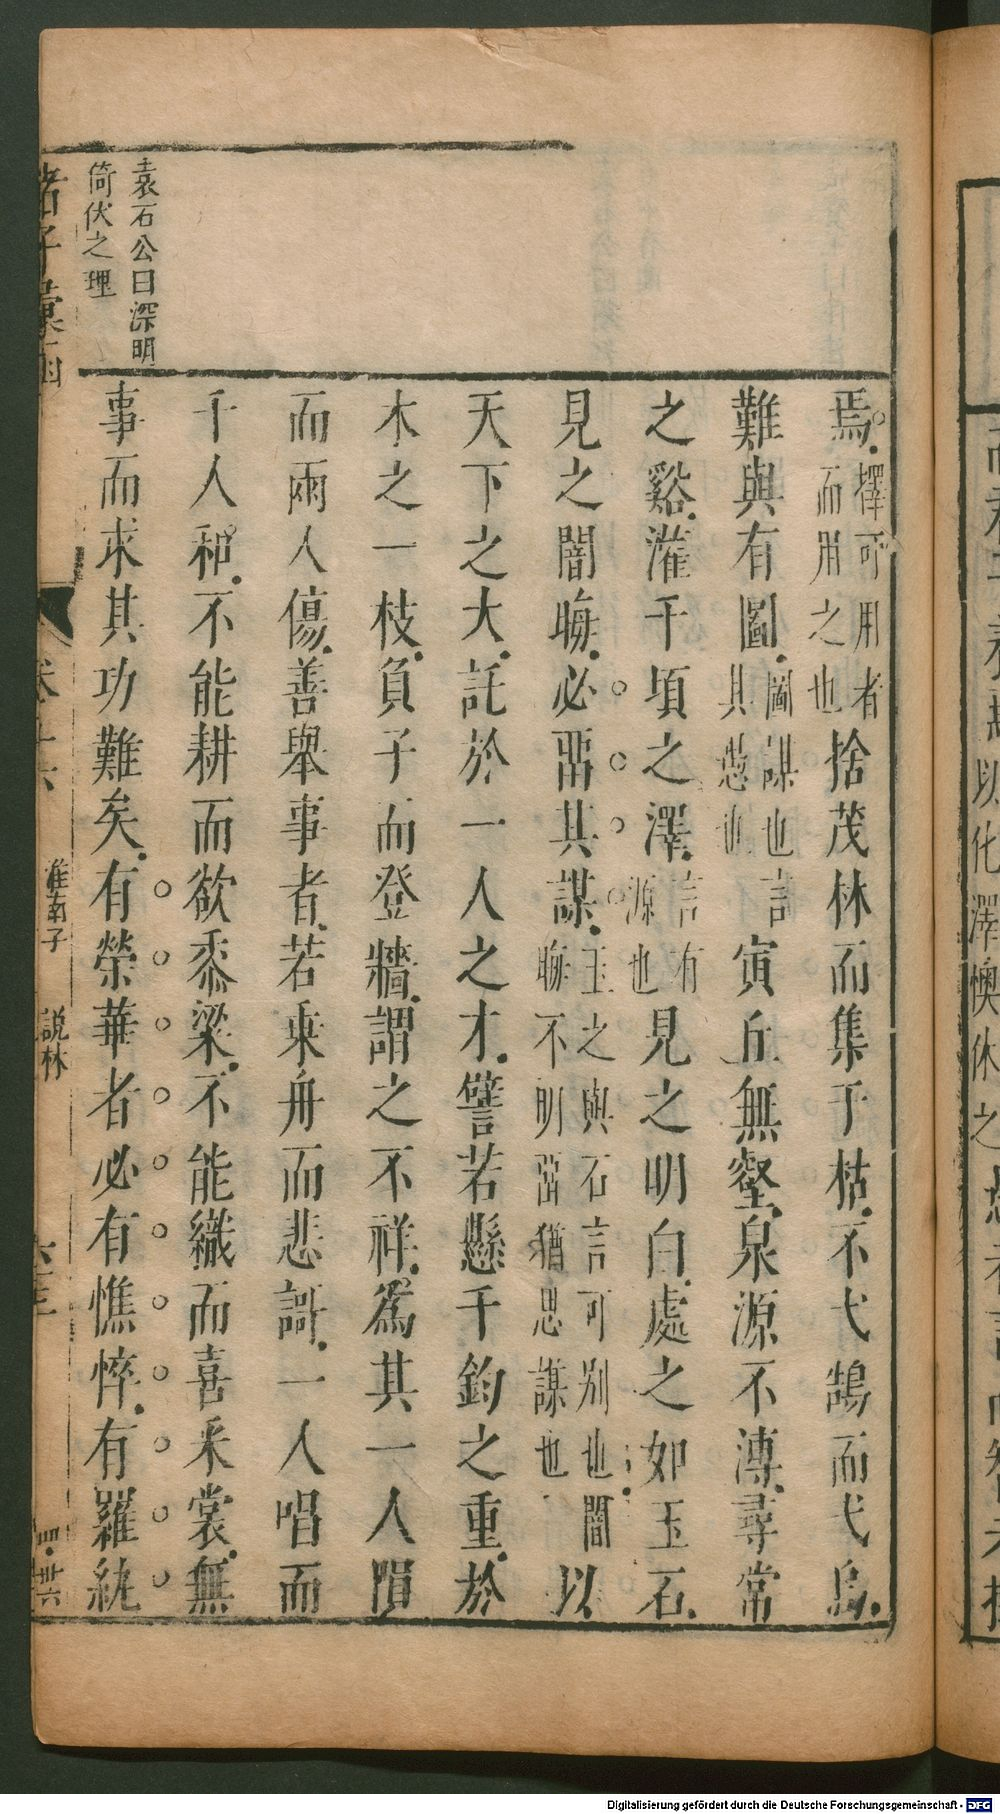 袁石公曰深明
倚伏之理
焉擇可用者而用之也捨茂林而集于枯不弋鵠而弋烏
難與有圖圖謀也言其愆也寅丘無壑泉源不溥尋常
之谿灌千頃之澤言有源也見之明白處之如玉石
見之闇晦必畱其謀玉之與石言可别也闇晦不明畱猶思謀也以
天下之大託於一人之才譬若懸千鈞之重於
木之一枝負子而登牆謂之不祥爲其一人隕
而兩人傷善舉事者若乘舟而悲謌一人唱而
千人和不能耕而欲黍粱不能織而喜釆裳無
事而求其功難矣有榮華者必有憔悴有羅紈
諸子彙函
卷十六
淮南子
說林
六十三
Digitalisierung gefördert durch die Deutsche Forschungsgemeinschaft - DFG